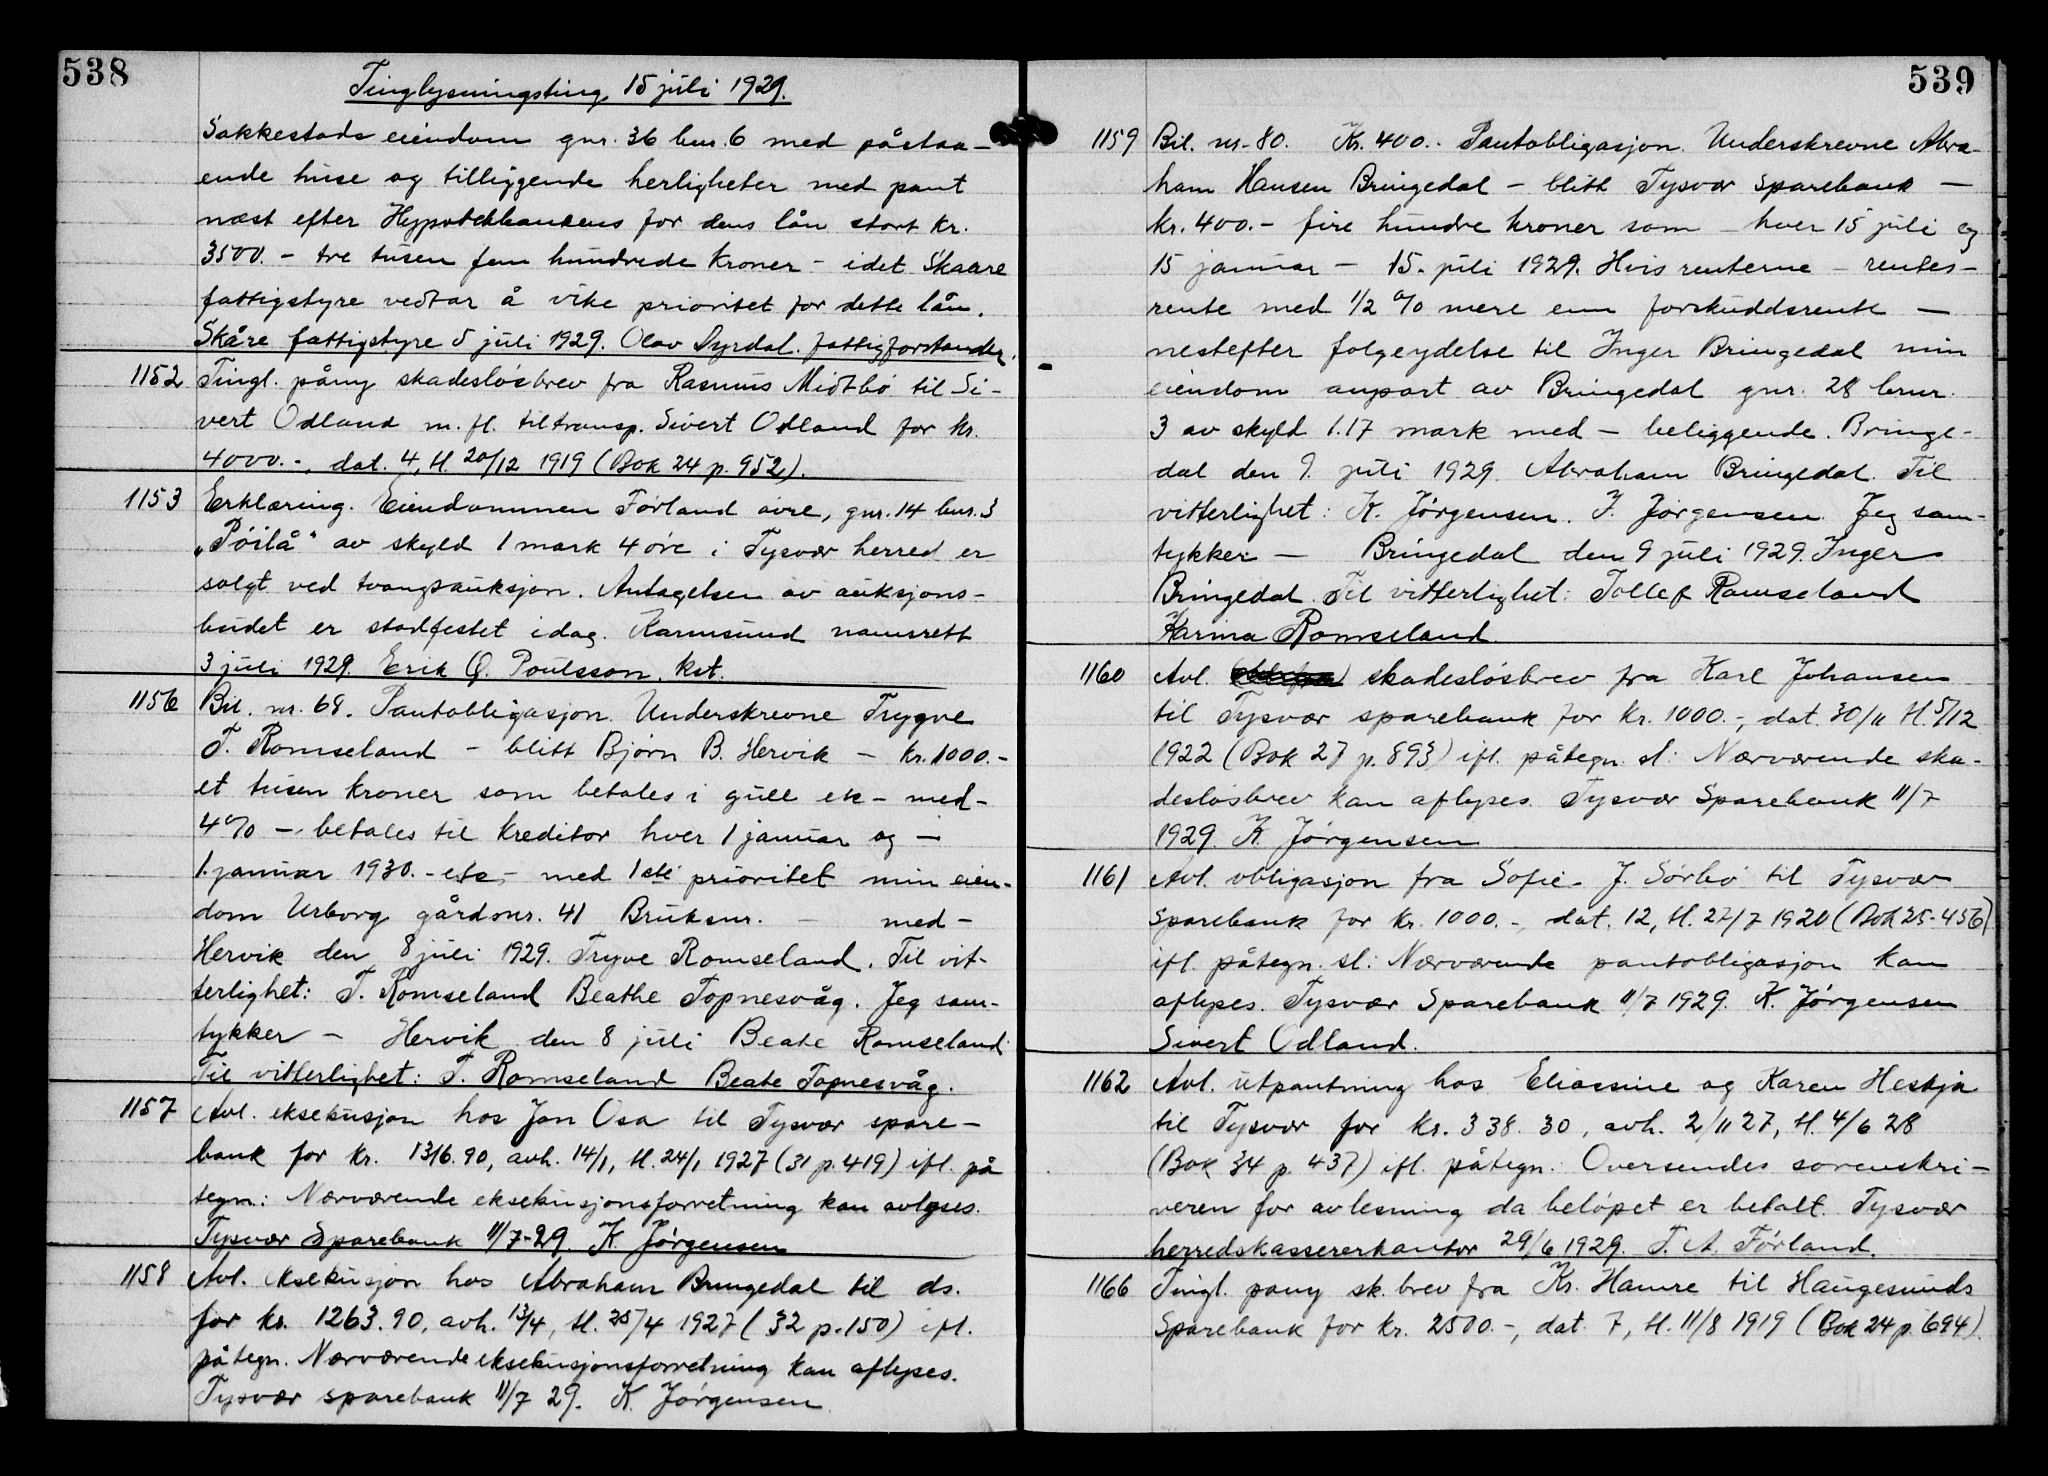 538
Tinglysningsting 15 juli 1929.
Sakkestads eiendom gnr. 36 bnr. 6 med påstaa-
ende huse og tilliggende herligheter med pant
næst efter Hypotekbankens for dens lån stort kr.
3500.- tre tusen fem hundrede kroner - idet Skaare
fattigstyre vedtar å vike prioritet for dette lån.
Skåre fattigstyre 5 juli 1929. Olav Syrdal. fattigforstander.
1152 Tingl. påny skadesløsbrev fra Rasmus Midtbö til Si-
vert Odland m. fl. til transp. Sivert Odland for kr.
4000.-, dat. 4, tl. 20/12 1919 (Bok 24 p. 952).
1153 Erklæring. Eiendommen Förland övre, gnr. 14 bnr. 3
„Pöilå" av skyld 1 mark 4 öre i Tysvær herred er
solgt ved tvangsauksjon. Antagelsen av auksjons-
budet er stadfestet idag. Karmsund namsrett
3 juli 1929. Erik Q. Poulsson. kst.
1156 Bil. nr. 68. Pantobligasjon. Underskrevne Trygve
T. Romseland - blitt Bjørn B. Hervik - kr. 1000.-
et tusen kroner som betales i gull etc - med-
4% -. betales til kreditor hver 1 januar og -
1. januar 1930. - etc - med 1ste prioritet min eien-
dom Urborg gårdsnr. 41 Bruksnr. - med -
Hervik den 8 juli 1929. Tryve Romseland. Til vit-
terlighet: T. Romseland Beathe Topnesvåg. Jeg sam-
tykker - Hervik den 8 juli Beate Romseland
Til vitterlighet: T. Romseland Beate Topnesvåg.
1157 Avl. eksekusjon hos Jon Osa til Tysvær spare-
bank for kr. 1316.90, avh. 14/1, tl. 24/1 1927 (31 p. 419) ifl. på
tegn.: Nærværende eksekusjonsforretning kan avlyses.
Tysvær Sparebank 11/7-29. K. Jörgensen
1158 Avl. eksekusjon hos Abraham Bringedal til ds.
for kr. 1263.90, avh. 13/4, tl. 25/4 1927 (32 p. 150) ifl.
påtegn. Nærværende eksekusjonsforretning kan aflyses.
Tysvær sparebank 11/7 29. K. Jörgensen.
539
1159 Bil. nr. 80. Kr. 400.- Pantobligasjon. Underskrevne Abra-
ham Hansen Bringedal - blitt Tysvær Sparebank -
kr. 400.- fire hundre kroner som - hver 15 juli og
15 januar - 15. juli 1929. Hvis renterne - rentes-
rente med 1/2 % mere enn forskuddsrente -
nestefter folgeydelse til Inger Bringedal min
eiendom anpart av Bringedal gnr. 28 brnr.
3 av skyld 1.17 mark med - beliggende. Bringe-
dal den 9. juli 1929. Abraham Bringedal. Til
vitterlighet: K. Jörgensen. J. Jörgensen. Jeg sam-
tykker - Bringedal den 9 juli 1929. Inger
Bringedal. Til vitterlighet: Tollef Ramseland
Karina Romseland.
1160 Avl. skadeslösbrev fra Karl Johansen
til Tysvær sparebank for kr. 1000.-, dat. 30/11 tl. 5/12
1922 (Bok 27 p. 893) ifl. påtegn. sl: Nærværende ska-
deslösbrev kan aflyses. Tysvær Sparebank 11/7
1929. K. Jörgensen
1161 Avl. obligasjon fra Sofie J. Sörbö til Tysvær
Sparebank for kr. 1000.-, dat. 12, tl. 27/7 1920 (Bok 25-456)
ifl. påtegn. sl: Nærværende pantobligasjon kan
aflyses. Tysvær Sparebank 11/7 1929. K. Jörgensen
Sivert Odland.
1162 Avl. utpantning hos Eliassine og Karen Heskja
til Tysvær for kr. 338.30, avh. 2/11 27, tl. 4/6 28
(Bok 34 p. 437) ifl. påtegn.: Oversendes sorenskri-
veren for avlesning da belöpet er betalt. Tysvær
herredskassererkontor 29/6 1929. T. A. Förland.
1166 Tingl. pany sk. brev fra Kr. Hamre til Haugesunds
Sparebank for kr. 2500.-, dat. 7, tl. 11/8 1919 (Bok 24 p. 694).